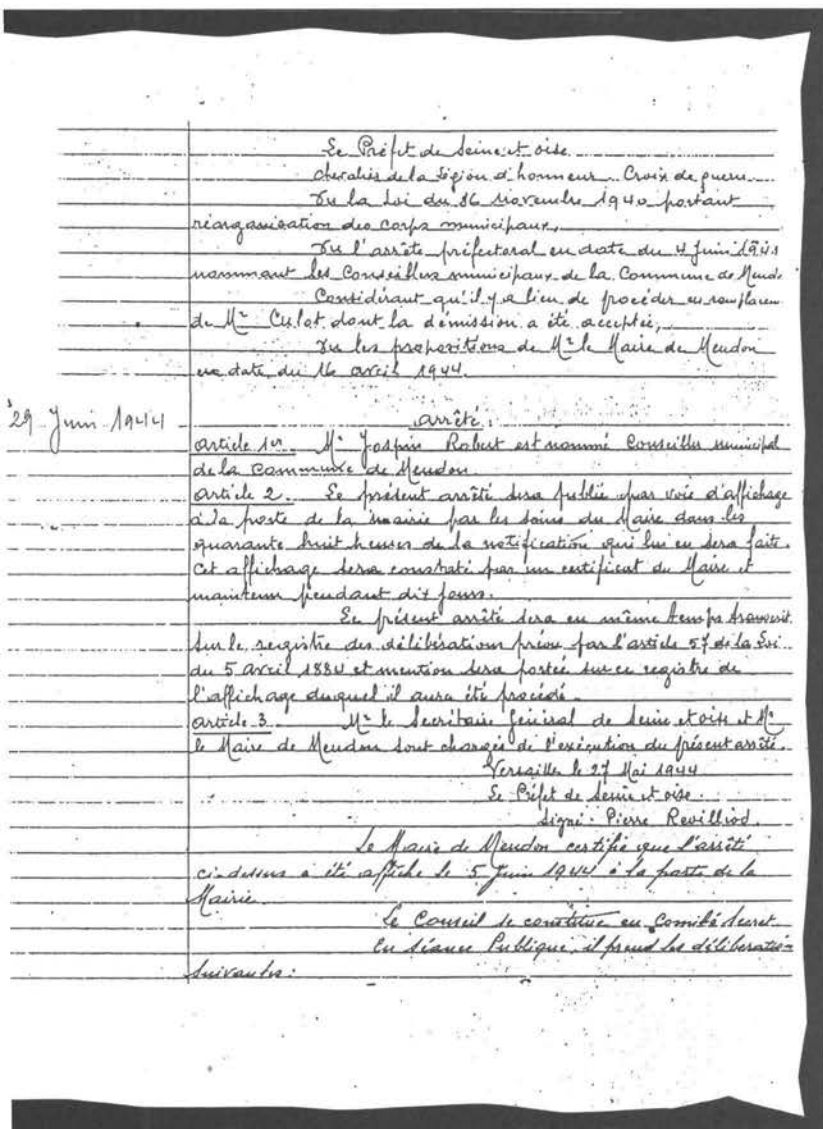 Le Préfet de Seine et oise
chevalier de la légion d'honneur. Croix de guerre.
Vu la Loi du 16 Novembre 1940 portant
réorganisation des corps municipaux,
Vu l'arrêté préfectoral en date du 4 Juin 1941
nommant les Conseillers municipaux de la Commune de Meud
Considérant qu'il y a lieu de procéder au remplacem
de Mr Culot dont la démission a été acceptée,
Vu les propositions de Mr le Maire de Meudon
en date du 16 avril 1944.
29 Juin 1944
arrête:
article 1er Mr Jospin Robert est nommé Conseiller municipal
de la Commune de Meudon.
article 2. Le présent arrêté sera publié par voie d'affichage
à la porte de la mairie par les soins du Maire dans les
quarante huit heures de la notification qui lui en sera faite.
Cet affichage sera constaté par un certificat du Maire et
maintenu pendant dix jours.
Le présent arrêté sera en même temps transcrit
sur le registre des délibérations prévu par l'article 57 de la Loi
du 5 avril 1884 et mention sera portée sur ce registre de
l'affichage duquel il aura été procédé.
article 3. Mr le Secrétaire Général de Seine et oise et Mr
le Maire de Meudon sont chargés de l'exécution du présent arrêté.
Versailles le 27 Mai 1944
Le Préfet de Seine et oise.
Signé: Pierre Revilliod.
Le Maire de Meudon certifie que l'arrêté
ci-dessus a été affiché le 5 Juin 1944 à la porte de la
Mairie.
Le Conseil se constitue en Comité Secret.
En séance Publique, il prend les délibération
suivantes: